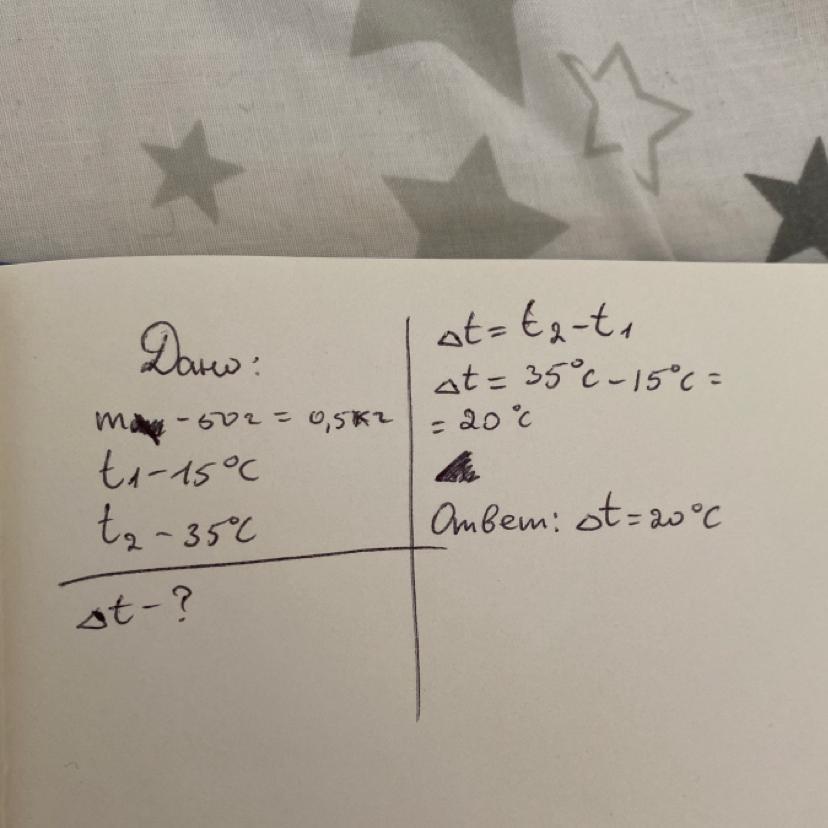 Дано:
m - 50г = 0,5кг
t1 - 15°C
t2 - 35°C
Δt - ?
Δt = t2 - t1
Δt = 35°C - 15°C =
= 20°C
Ответ: Δt = 20°C